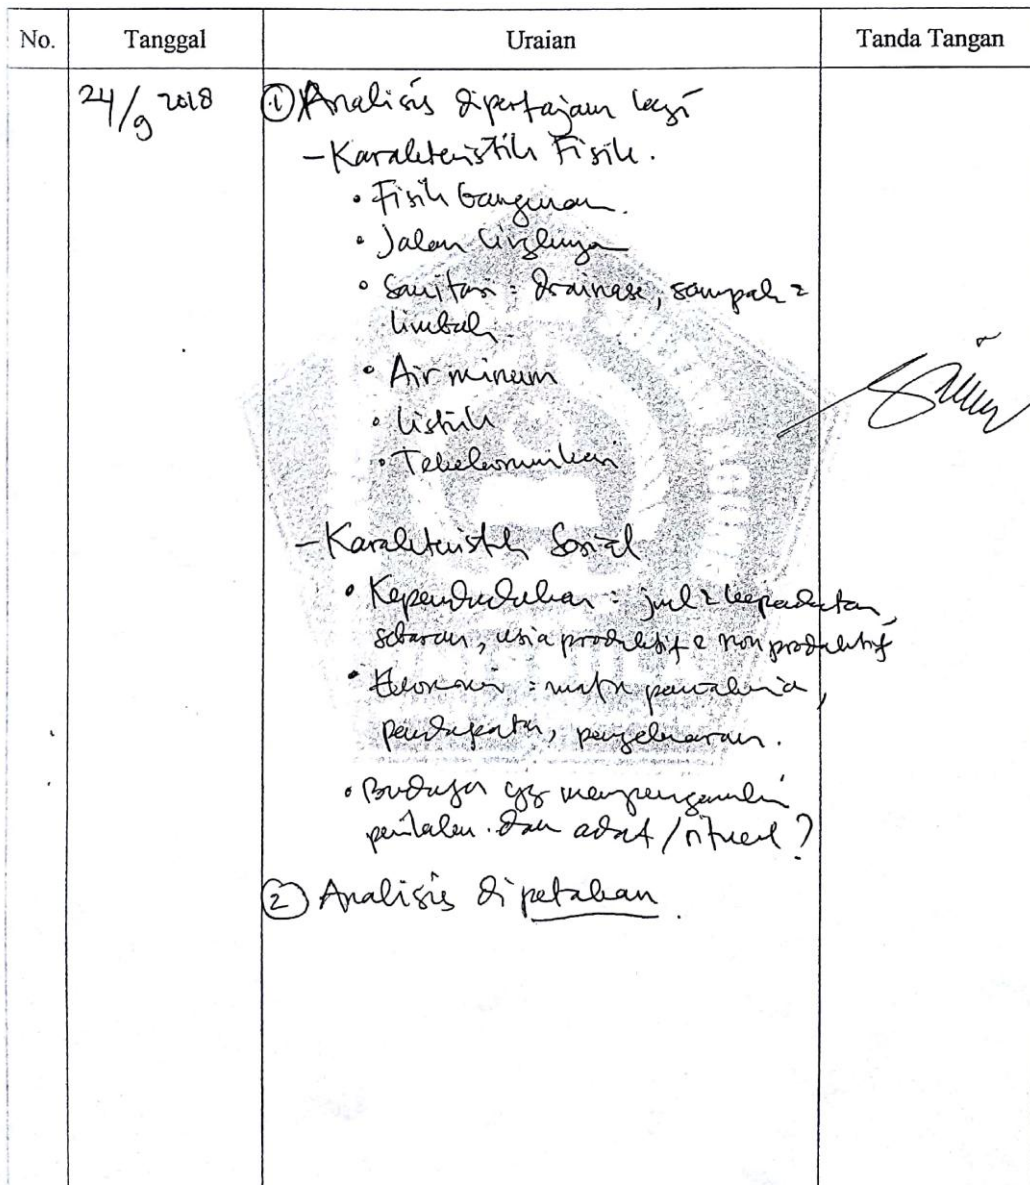 No. Tanggal Uraian Tanda Tangan
24/9 2018 ① Analisis dipertajam lagi
- Karakteristik Fisik.
• Fisik bangunan.
• Jalan lingkungan
• Sanitasi : drainase, sampah &
limbah
• Air minum
• Listrik
• Telekomunikasi
- Karakteristik Sosial
• Kependudukan : jml & kepadatan,
sebaran, usia produktif & non produktif
• Ekonomi : mata pencaharian,
pendapatan, pengeluaran.
• Budaya yg mempengaruhi
perilaku dan adat / ritual ?
② Analisis dipetakan.